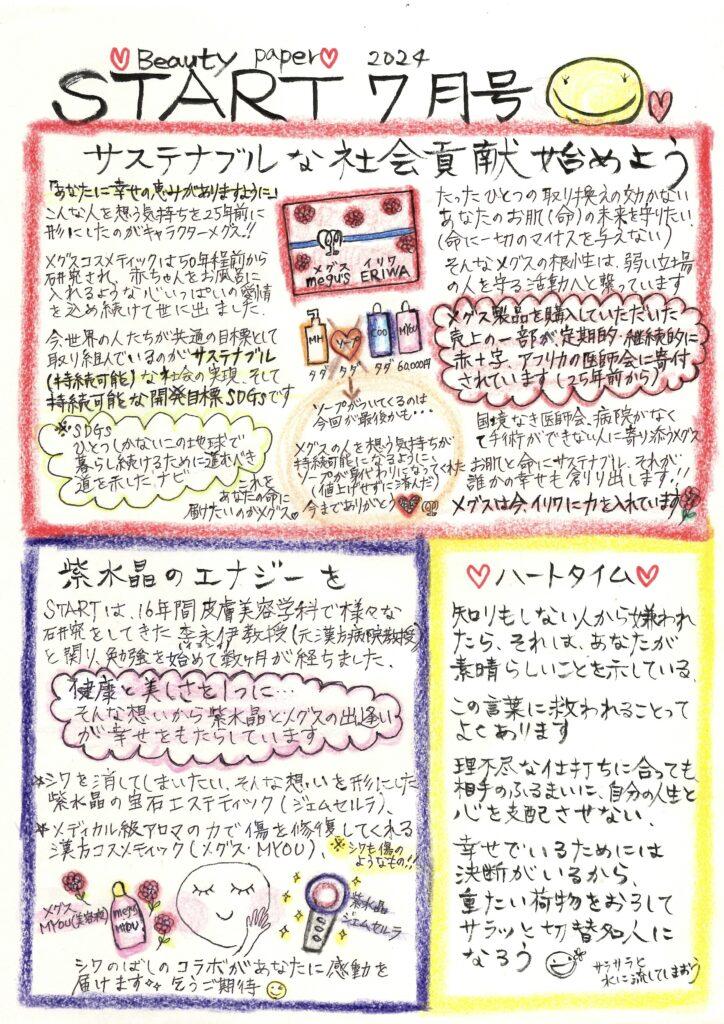 Beauty paper 2024
START 7月号
サステナブルな社会貢献始めよう
「あなたに幸せの恵みがありますように」
こんな人を想う気持ちを25年前に
形にしたのがキャラクターメグス!!
メグスコスメティックは50年程前から
研究され、赤ちゃんをお風呂に
入れるような心いっぱいの愛情
を込め続けて世に出ました。
今世界の人たちが共通の目標として
取り組んでいるのがサステナブル
(持続可能)な社会の実現、そして
持続可能な開発目標SDGsです
※SDGs
ひとつしかないこの地球で
暮らし続けるために進むべき
道を示した、ナビ
これを
あなたの命に
届けたいのがメグス
メグス イリワ
megu's ERIWA
MH ソープ COO MYOU
タダ タダ タダ 60,000円
ソープがついてくるのは
今回が最後かも…
メグスの人を想う気持ちが
持続可能になるように、
ソープが身代わりになってくれた
(値上げせずに済んだ)
今までありがとう
たったひとつの取り換えの効かない
あなたのお肌(命)の未来を守りたい
(命に一切のマイナスを与えない)
そんなメグスの根性は、弱い立場
の人を守る活動へと繋っています
メグス製品を購入していただいた
売上の一部が、定期的・継続的に
赤十字、アフリカの医師会に寄付
されています(25年前から)
国境なき医師会、病院がなく
て手術ができない人に寄り添うメグス
お肌と命にサステナブル、それが
誰かの幸せも創り出します!!
メグスは今、イリワに力を入れています
紫水晶のエナジーを
STARTは、16年間皮膚美容学科で様々な
研究をしてきた李永伊教授(元漢方病院教授)
と関り、勉強を始めて数ヶ月が経ちました、
健康と美しさを1つに…
そんな想いから紫水晶とメグスの出逢い
が幸せをもたらしています
*シワを消してしまいたい、そんな想いを形にした
紫水晶の宝石エステティック(ジェムセルラ)、
*メディカル級アロマの力で傷を修復してくれる
漢方コスメティック(メグス・MYOU)、
※シワも傷の
ようなもの!!
メグス
MYOU(美容液)
megu's
MYOU
紫水晶
ジェムセルラ
シワのばしのコラボがあなたに感動を
届けます 乞うご期待
ハートタイム
知りもしない人から嫌われ
たら、それは、あなたが
素晴らしいことを示している、
この言葉に救われることって
よくあります
理不尽な仕打ちに合っても
相手のふるまいに、自分の人生と
心を支配させない、
幸せでいるためには
決断がいるから、
重たい荷物をおろして
サラッと切替名人に
なろう
サラサラと
水に流してしまおう